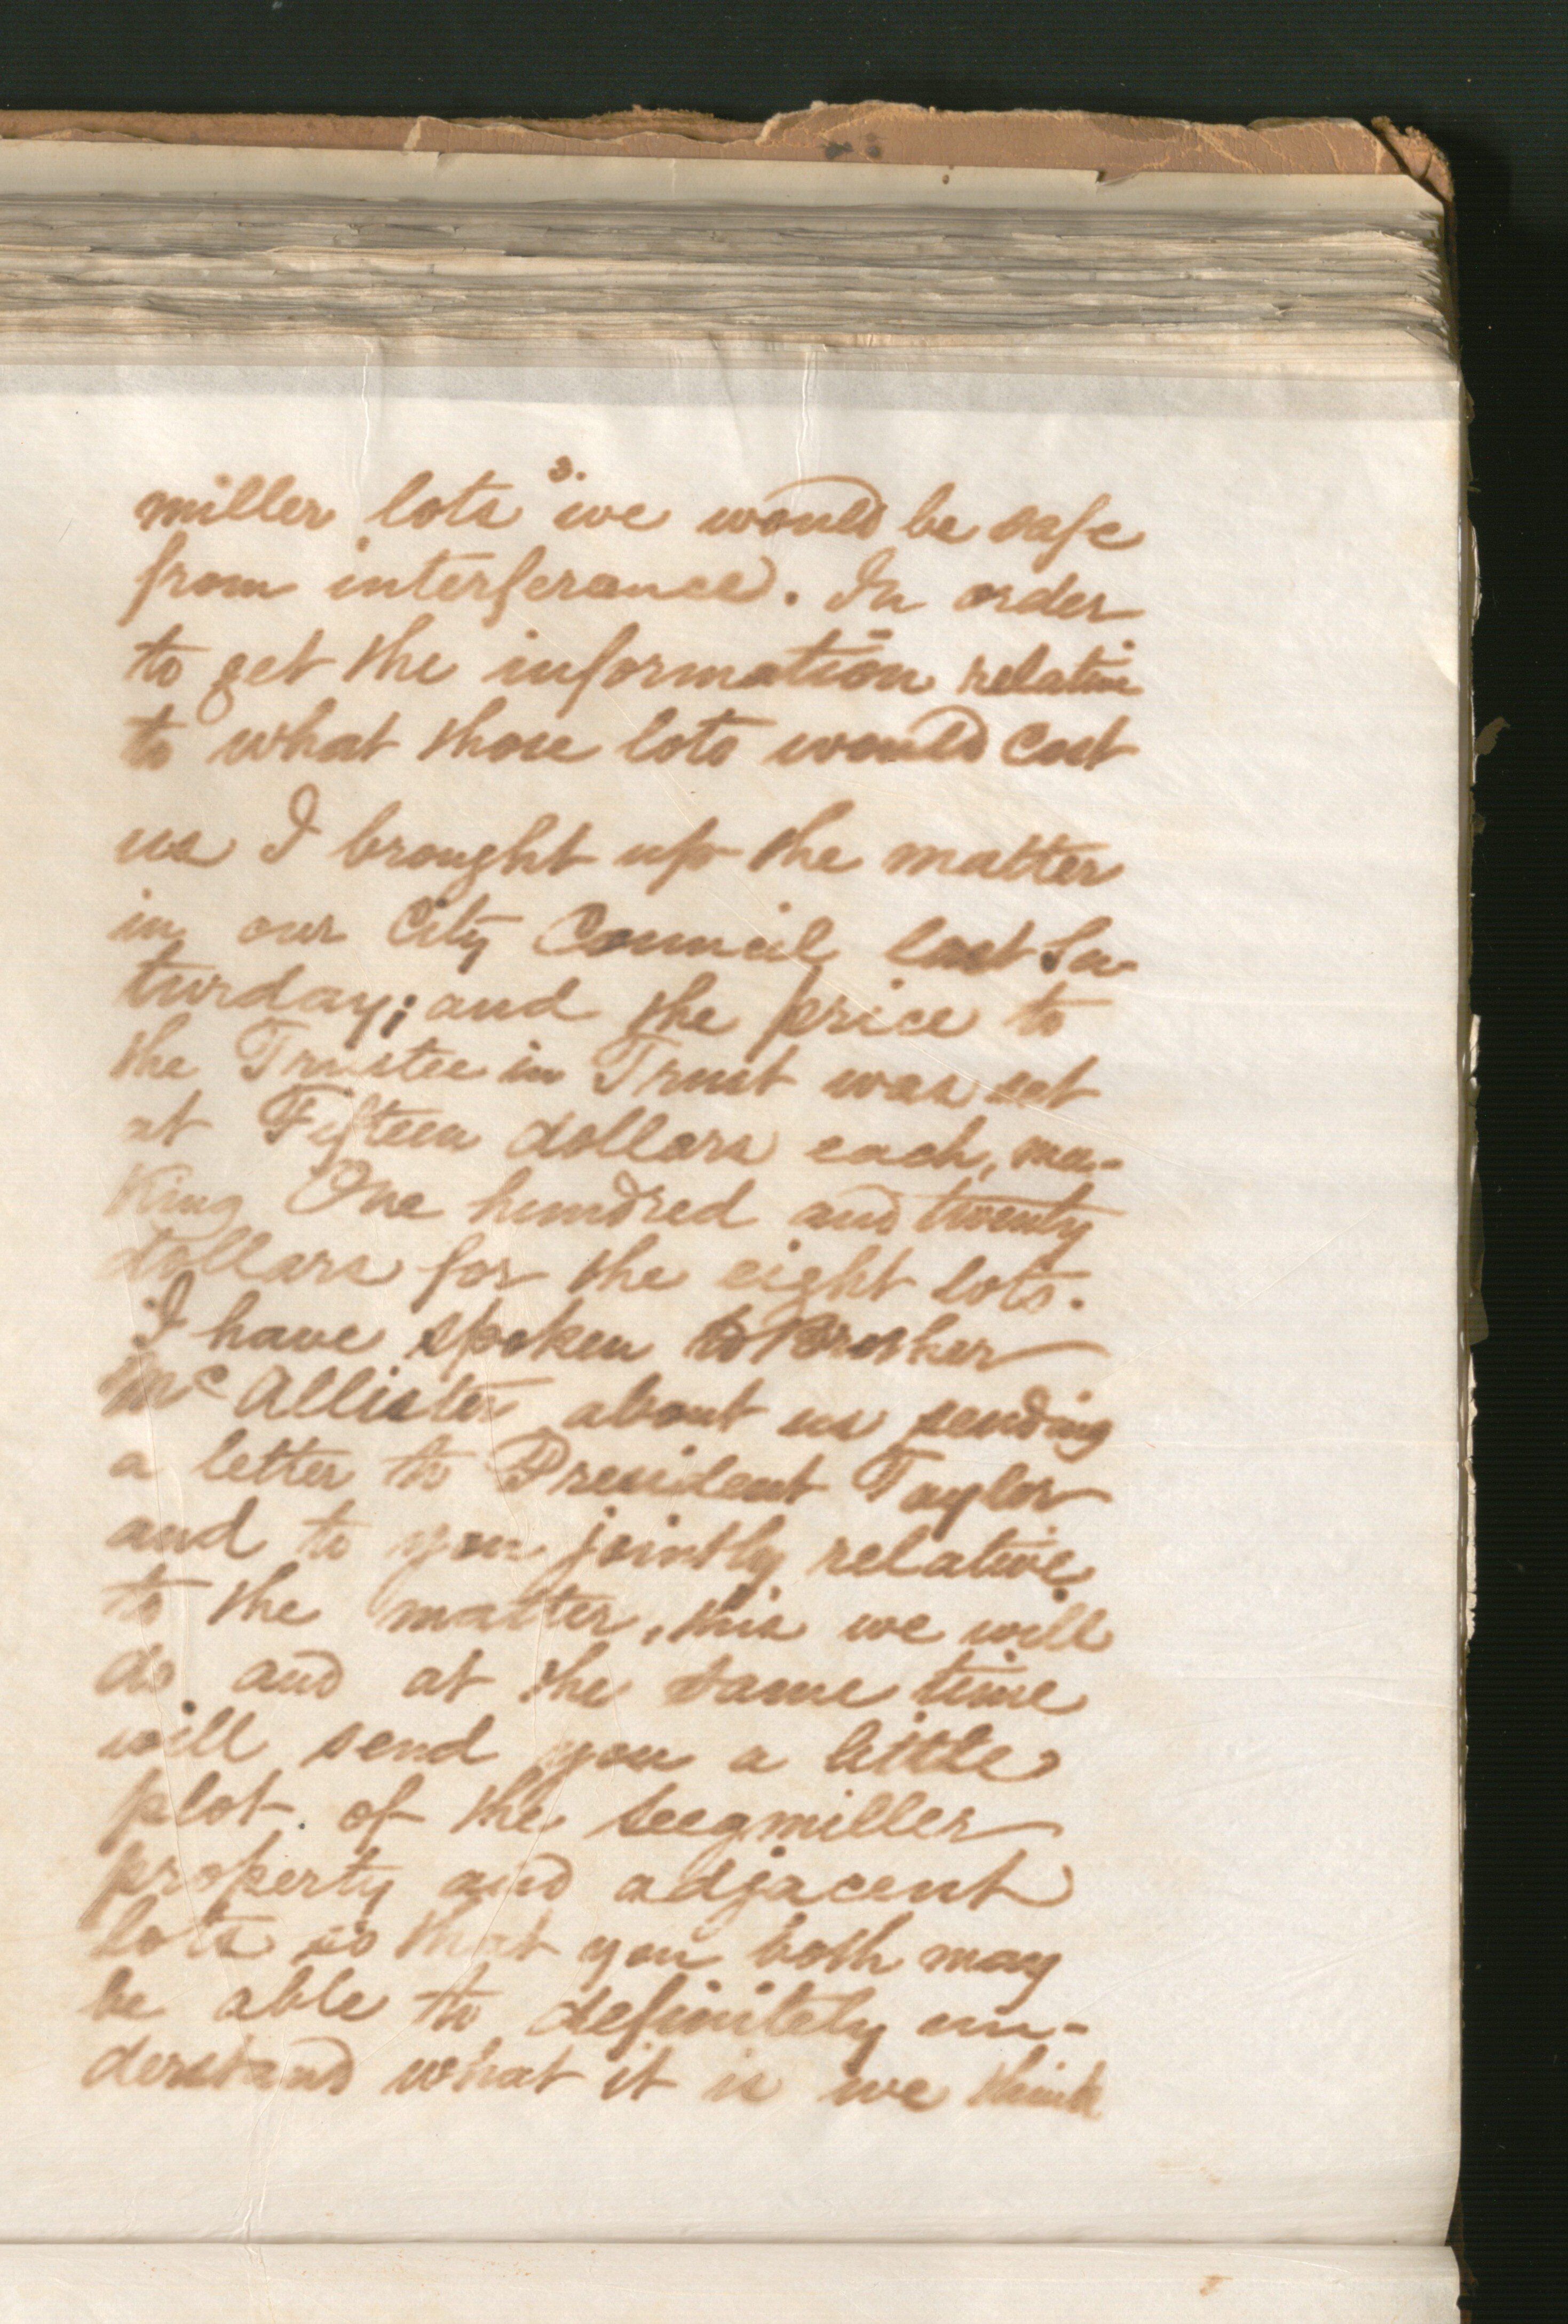 3.
miller lots we would be safe
from interference. In order
to get the information relative
to what those lots would cost
us I brought up the matter
in our City Council last Sa-
turday; and the price to
the Trustee in Trust was set
at Fifteen dollars each, ma-
king One hundred and twenty
dollars for the eight lots.
I have spoken to Brother
McAllister about us sending
a letter to President Taylor
and to you jointly relative
to the matter, this we will
do and at the same time
will send you a little
plot of the Seegmiller
property and adjacent
lots so that you both may
be able to definitely un-
derstand what it is we think